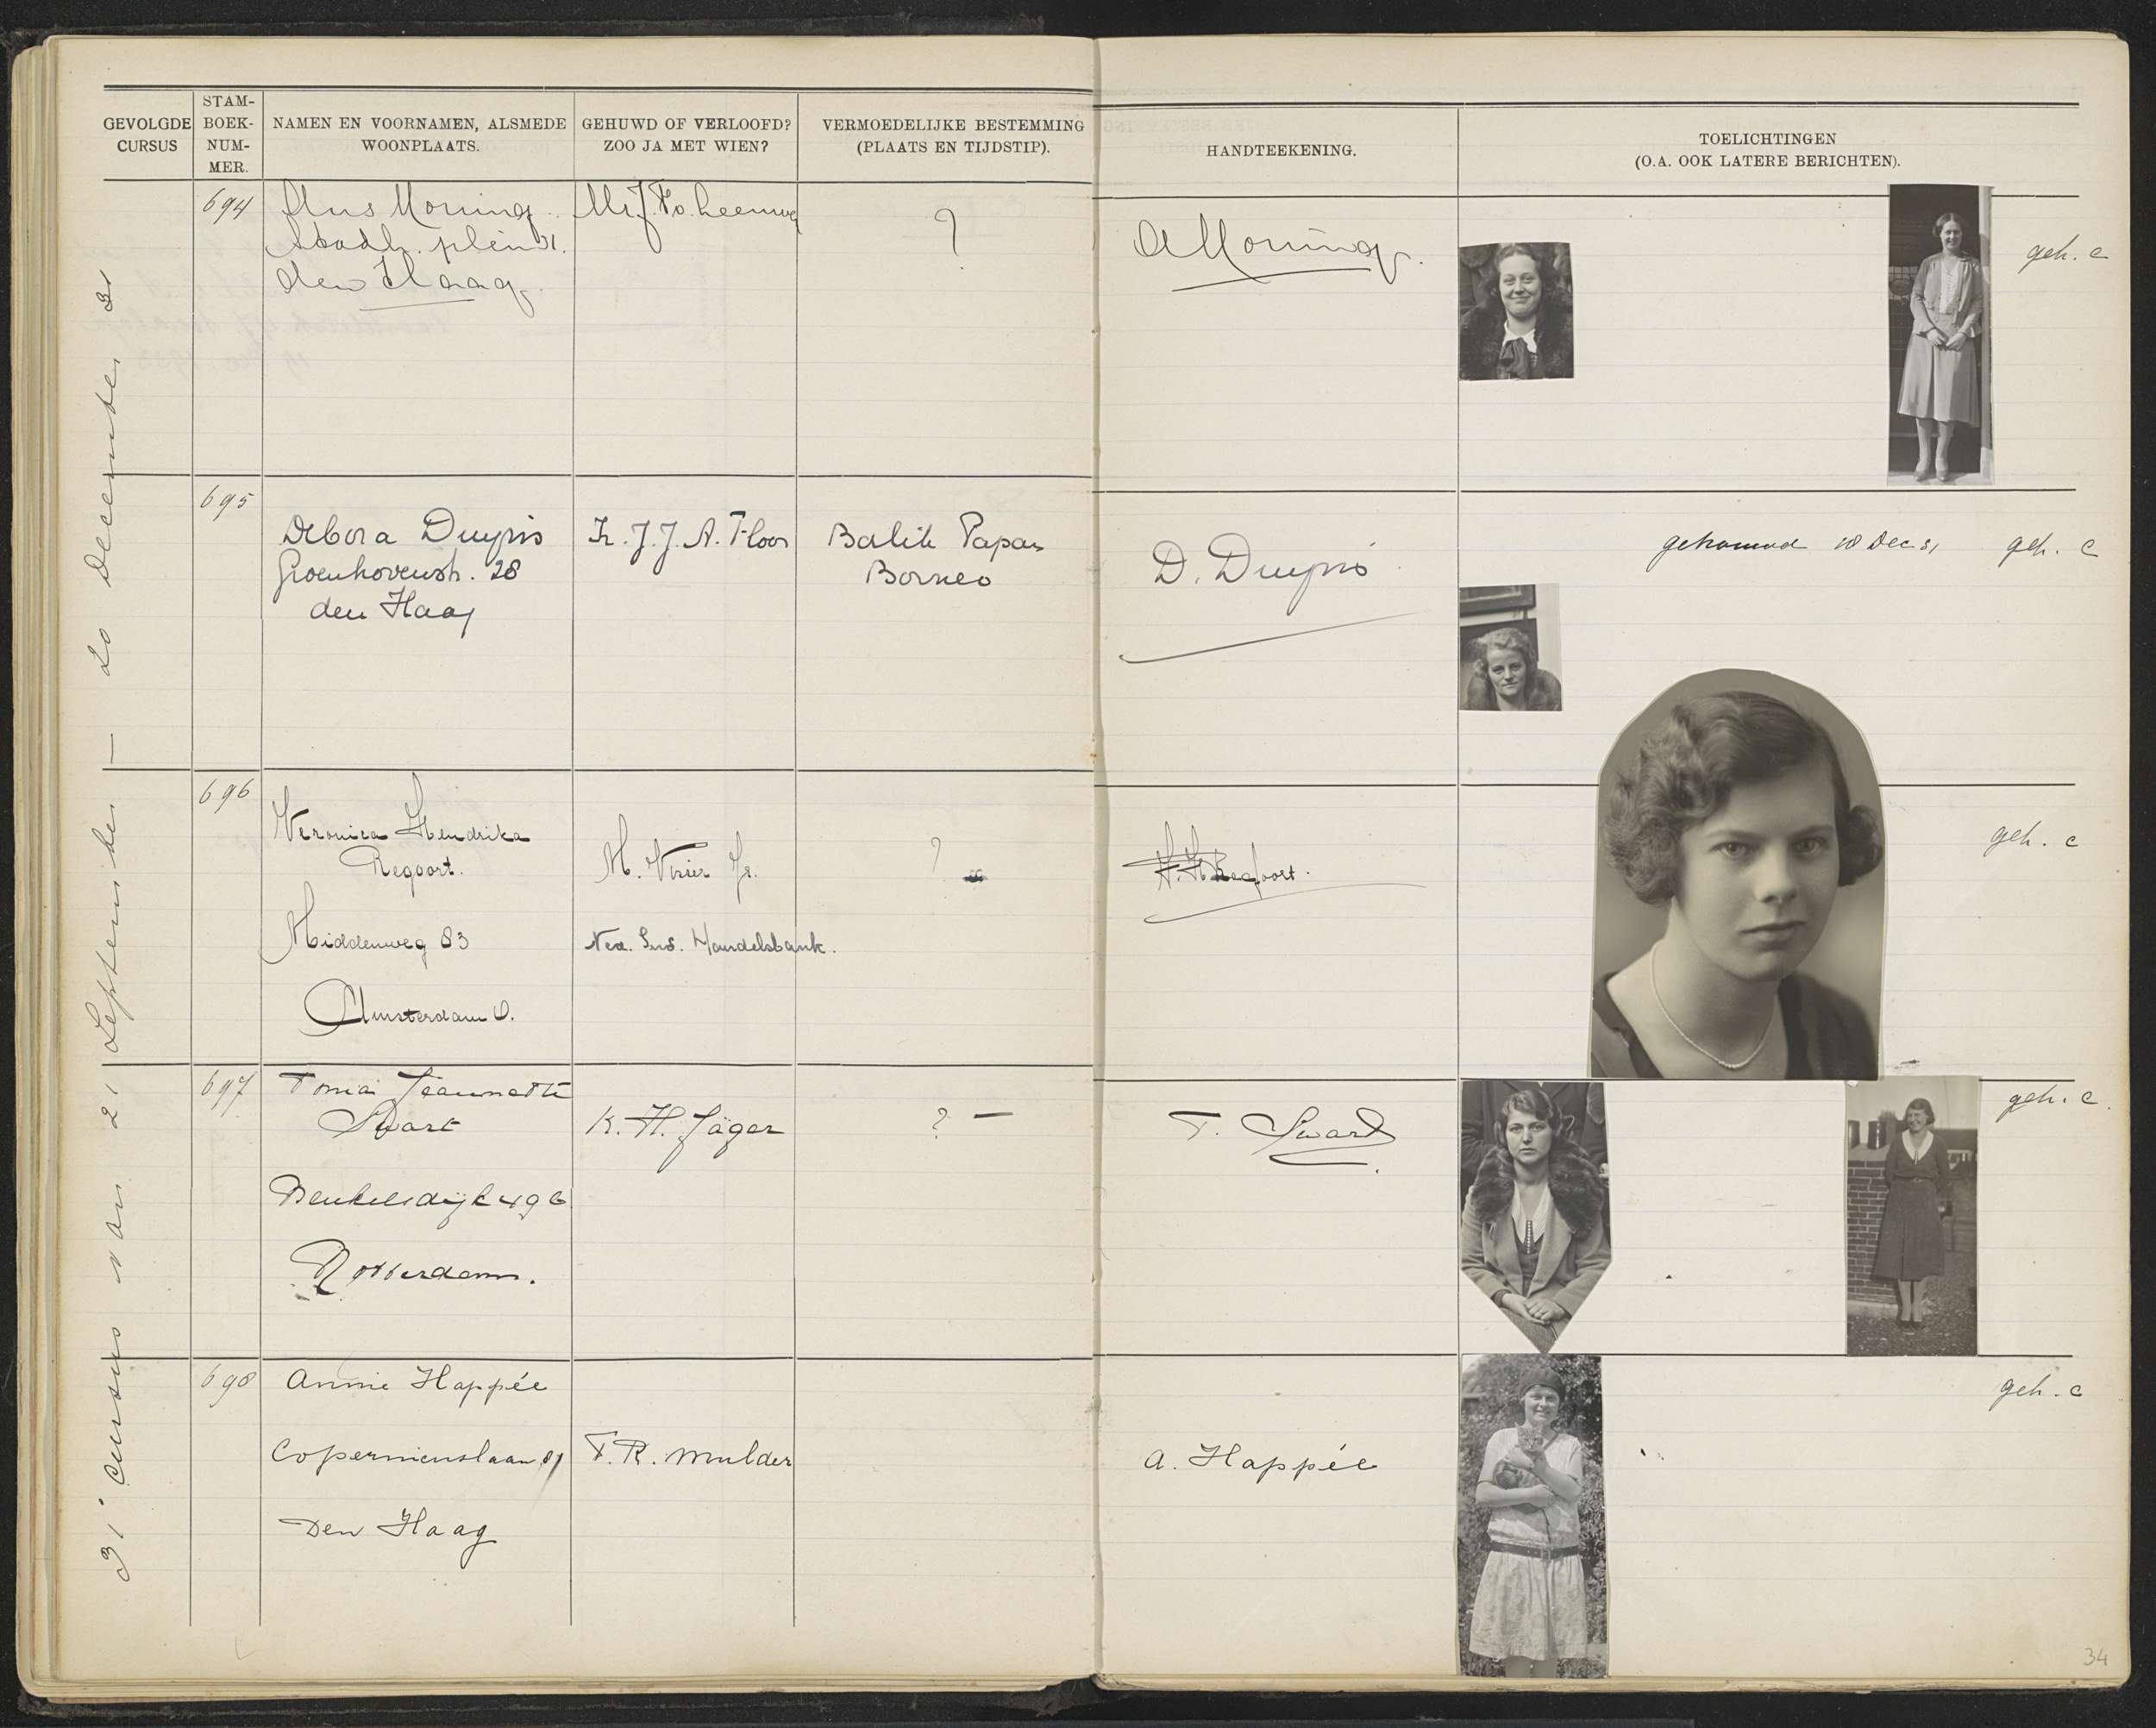 GEVOLGDE CURSUS
STAM-BOEK-NUM-MER.
NAMEN EN VOORNAMEN, ALSMEDE WOONPLAATS.
GEHUWD OF VERLOOFD? ZOO JA MET WIEN?
VERMOEDELIJKE BESTEMMING (PLAATS EN TIJDSTIP).
HANDTEEKENING.
TOELICHTINGEN
(O.A. OOK LATERE BERICHTEN).
31e cursus van 21 September — 20 December 31
694
Moning
Stadh. plein
den Haag.
Mr J.
?
A Moning.
geh. c
695
Debora Duyvis
Groenhovenstr. 28
den Haag
Ir. J. J. A. Floor
Balik Papan
Borneo
D. Duyvis
getrouwd 18 Dec 31
geh. c
696
Veronica Hendrika
Regoort.
Middenweg 83
Amsterdam O.
M. Visser Jr.
Ned. Ind. Handelsbank.
?
geh. c
697
Tonia Jeannette
Swart
Beukelsdijk
Rotterdam.
K. H. Jäger
? —
T. Swart
geh. c.
698
Annie Happée
Copernicuslaan 87
Den Haag
F. R. Mulder
A. Happée
geh. c
34